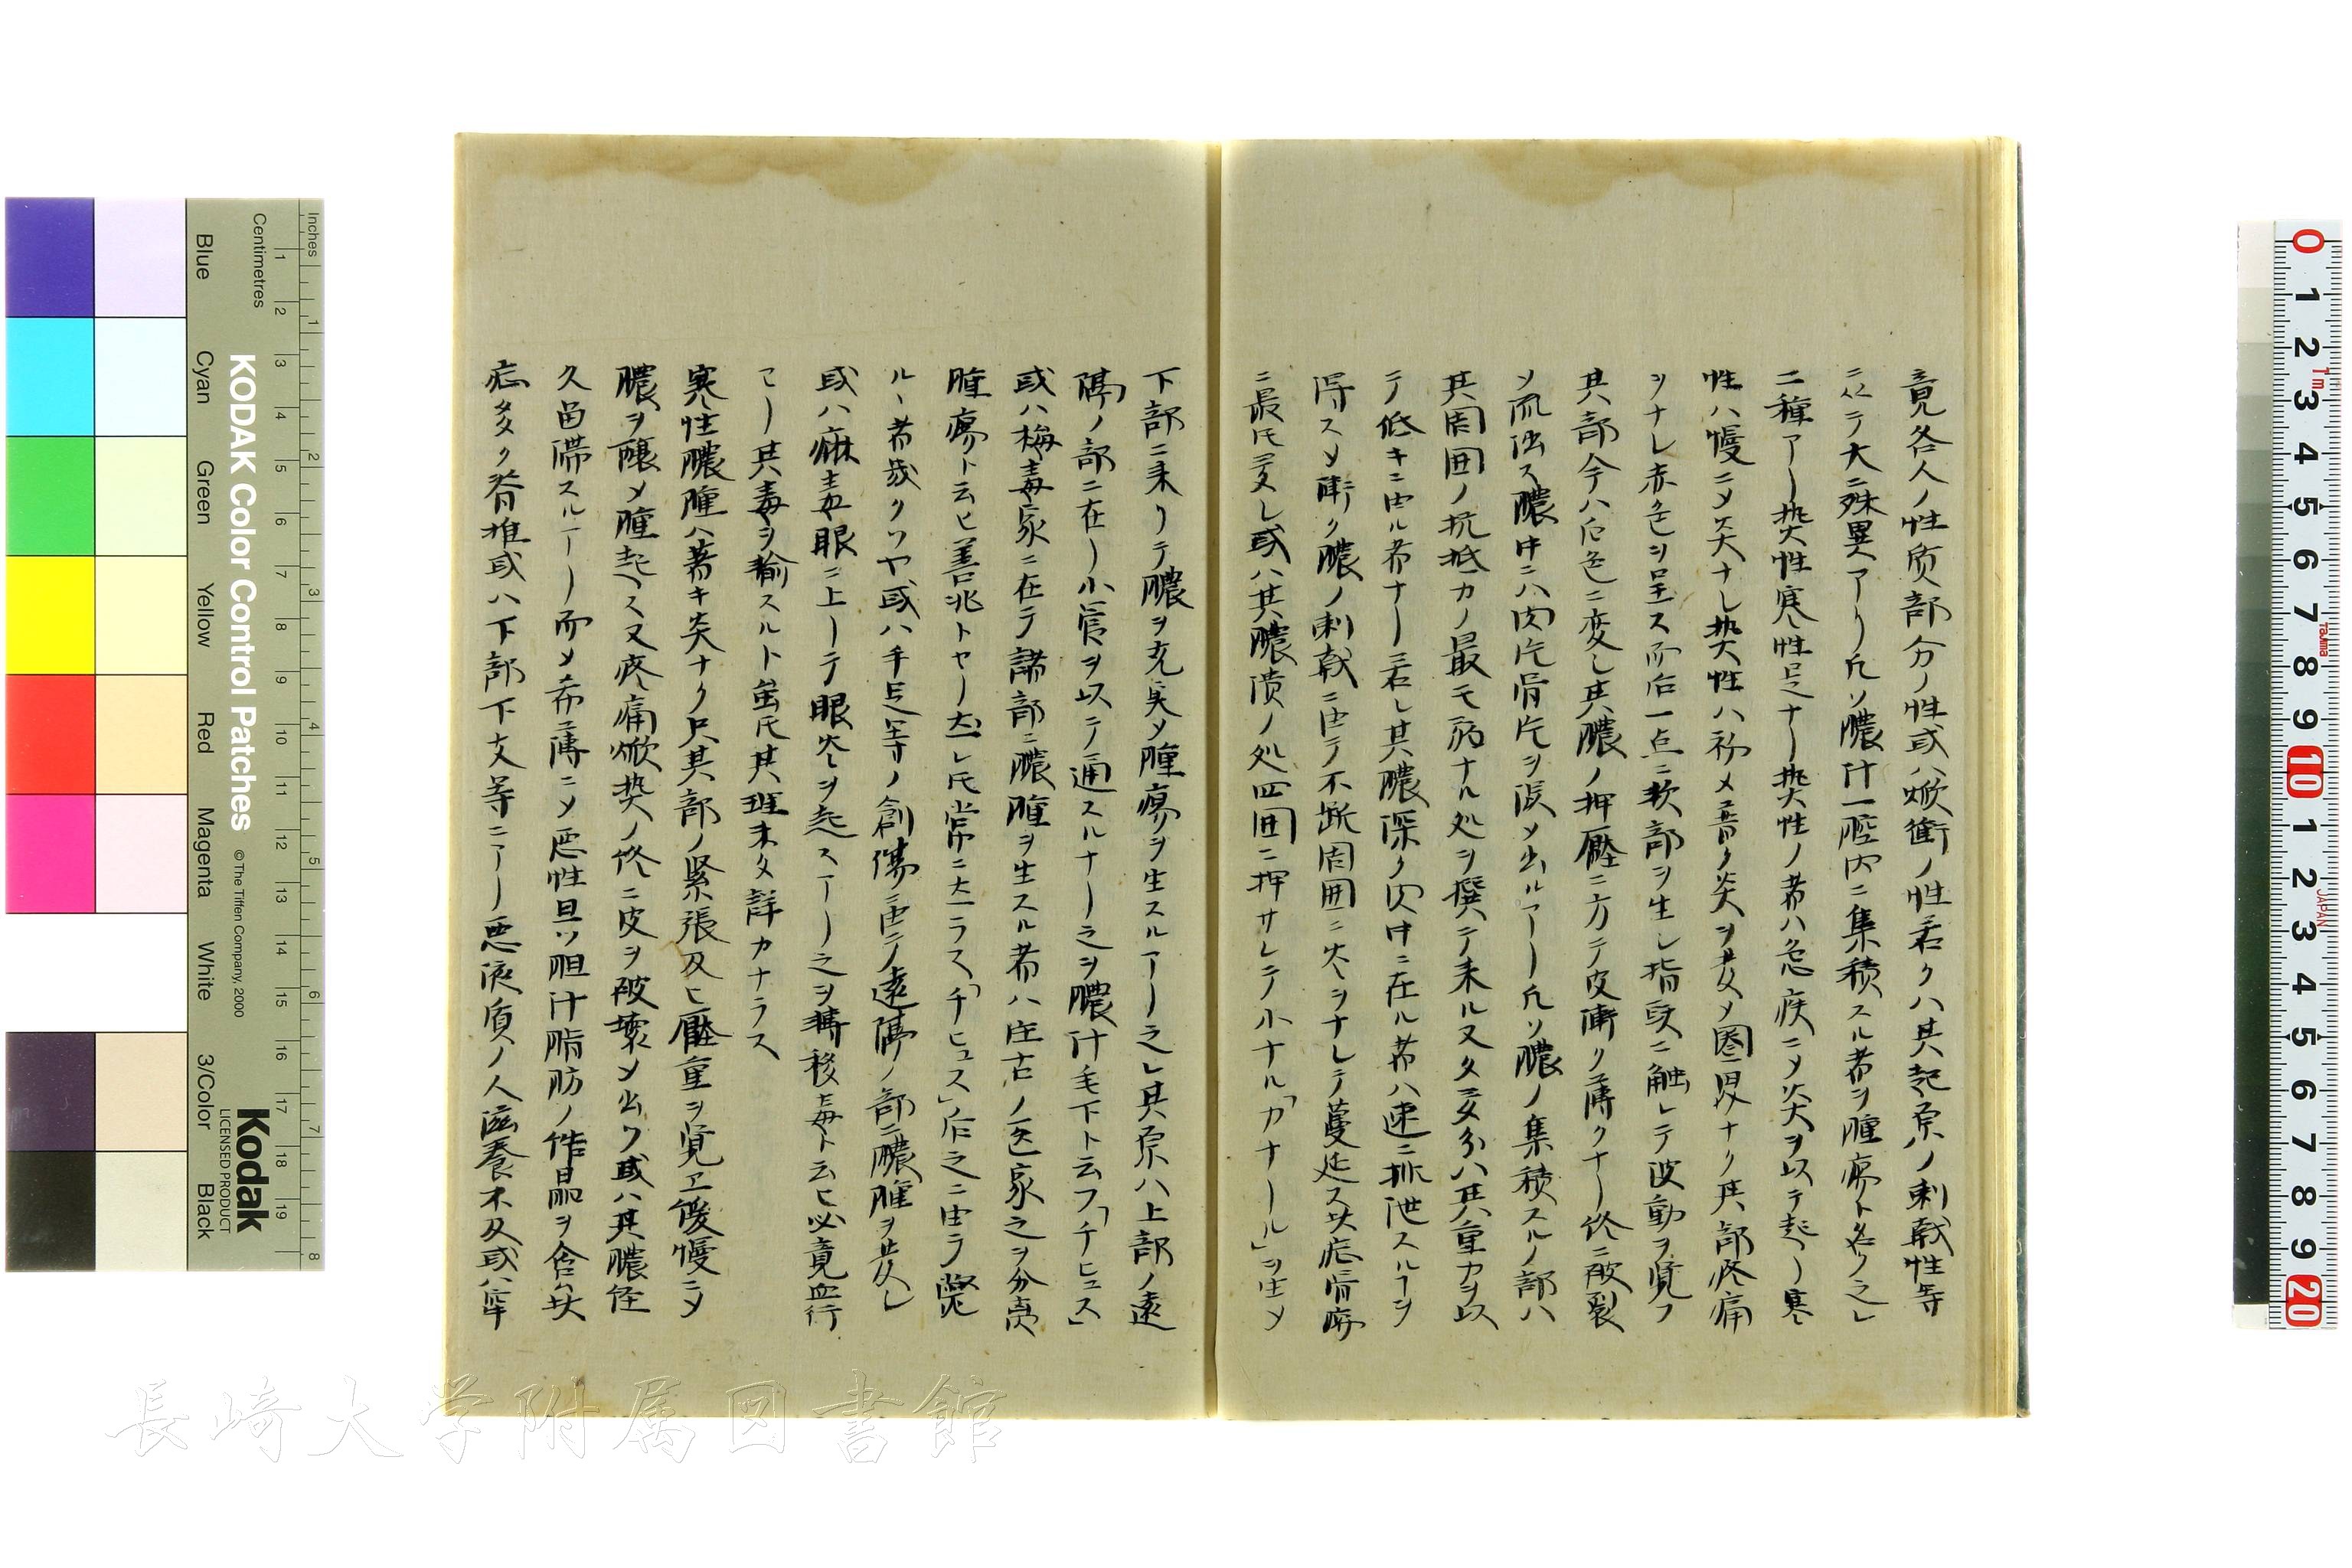 竟各人ノ性质部分ノ性或ハ焮衝ノ性若クハ其起原ノ刺戟性等
ニ従テ大ニ殊異アリ凡ソ膿汁一腔内ニ集積スル者ヲ腫瘍ト名ク之レ
二種アリ熱性寒性是ナリ熱性ノ者ハ急疾ニメ炎ヲ以テ起リ寒
性ハ慢ニメ炎ナレ熱性ハ初メ普ク炎ヲ発メ圏界ナク其部疼痛
ヲナレ赤色ヲ呈ス而后一点ニ軟部ヲ生レ指頭ニ触レテ波動ヲ覚フ
其部今ハ白色ニ変レ其膿ノ押壓ニ方テ皮漸ク薄クナリ终ニ破裂
ソ流泄ス膿中ニハ肉片骨片ヲ混メ出ルアリ凡ソ膿ノ集積スルノ部ハ
其周囲ノ抗抵力ノ最モ弱ナル処ヲ撰テ来ル又タ多分ハ其重力ヲ以
テ低キニ由ル者ナリ若レ其膿深ク肉中ニ在ル者ハ速ニ排泄スルヿヲ
得スメ漸ク膿ノ刺戟ニ由テ不断周囲ニ炎ヲナレテ蔓延ス此症骨瘍
ニ最氏多レ或ハ其膿潰ノ処四囲ニ押サレテ小ナル「カナール」ヲ生メ
下部ニ来リテ膿ヲ充実メ腫瘍ヲ生スルアリ之レ其原ハ上部ノ遠
隔ノ部ニ在リ小管ヲ以テ通スルナリ之ヲ膿汁毛下ト云フ「チヒュス」
或ハ梅毒家ニ在テ諸部ニ膿腫ヲ生スル者ハ往古ノ医家之ヲ分离
腫瘍ト云ヒ善兆トセリ然レ氏常ニ然ラス「チヒュス」后之ニ由テ斃
ルヽ者幾クソヤ或ハ手足等ノ創傷ニ由テ遠隔ノ部ニ膿腫ヲ発レ
或ハ痳毒眼ニ上リテ眼炎ヲ起スアリ之ヲ轉移毒ト云ヒ必竟血行
ヨリ其毒ヲ輸スルト虽氏其理未タ詳カナラス
寒性膿腫ハ著キ炎ナク只其部ノ緊張及ヒ壓重ヲ覚ヱ緩慢ニメ
膿ヲ醸メ腫起ス又疼痛焮熱ノ终ニ皮ヲ破壊メ出ツ或ハ其膿径
久留滞スルヿアリ而メ希薄ニメ悪性且ツ胆汁脂肪ノ件品ヲ含ム此
症多ク脊椎或ハ下部下支等ニアリ悪液質ノ人滋養不及或ハ窂